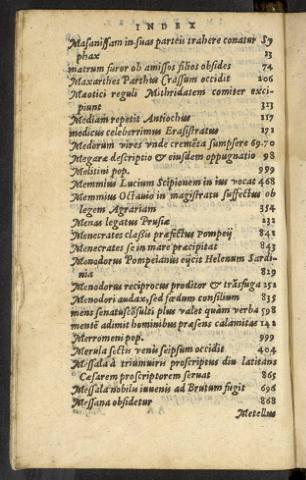 INDEX
Masanissam in suas parteis trahere conatur Sy
phax 13
matrum furor ob amissos filios obsides 74
Maxarthes Parthus Crassum occidit 206
Mæotici reguli Mithridatem comiter exci
piunt 323
Mediam repetit Antiochus 117
medicus celeberrimus Erasistratus 191
Medorum vires vnde cremēta sumpsere 69.70
Megaræ descriptio & eiusdem oppugnatio 98
Melitini pop. 999
Memmius Lucium Scipionem in ius vocat 468
Memmius Octauio in magistratu suffectus ob
legem Agrariam 354
Menas legatus Prusiæ 232
Menecrates classis præfectus Pompeij 841
Menecrates se in mare præcipitat 843
Menodorus Pompeianus eijcit Helenum Sardi-
nia 829
Menodorus reciprocus proditor & trāsfuga 251
Menodori audax, sed fœdum consilium 835
mens senatuscōsulti plus valet quàm verba 598
mentē adimit hominibus præsens calamitas 142
Merromeni pop. 999
Merula sectis venis seipsum occidit 404
Messala à triumuiris proscriptus diu latitans
Cæsarem proscriptorem seruat 865
Messala nobilis iuuenis ad Brutum fugit 696
Messana obsidetur 868
Metellus